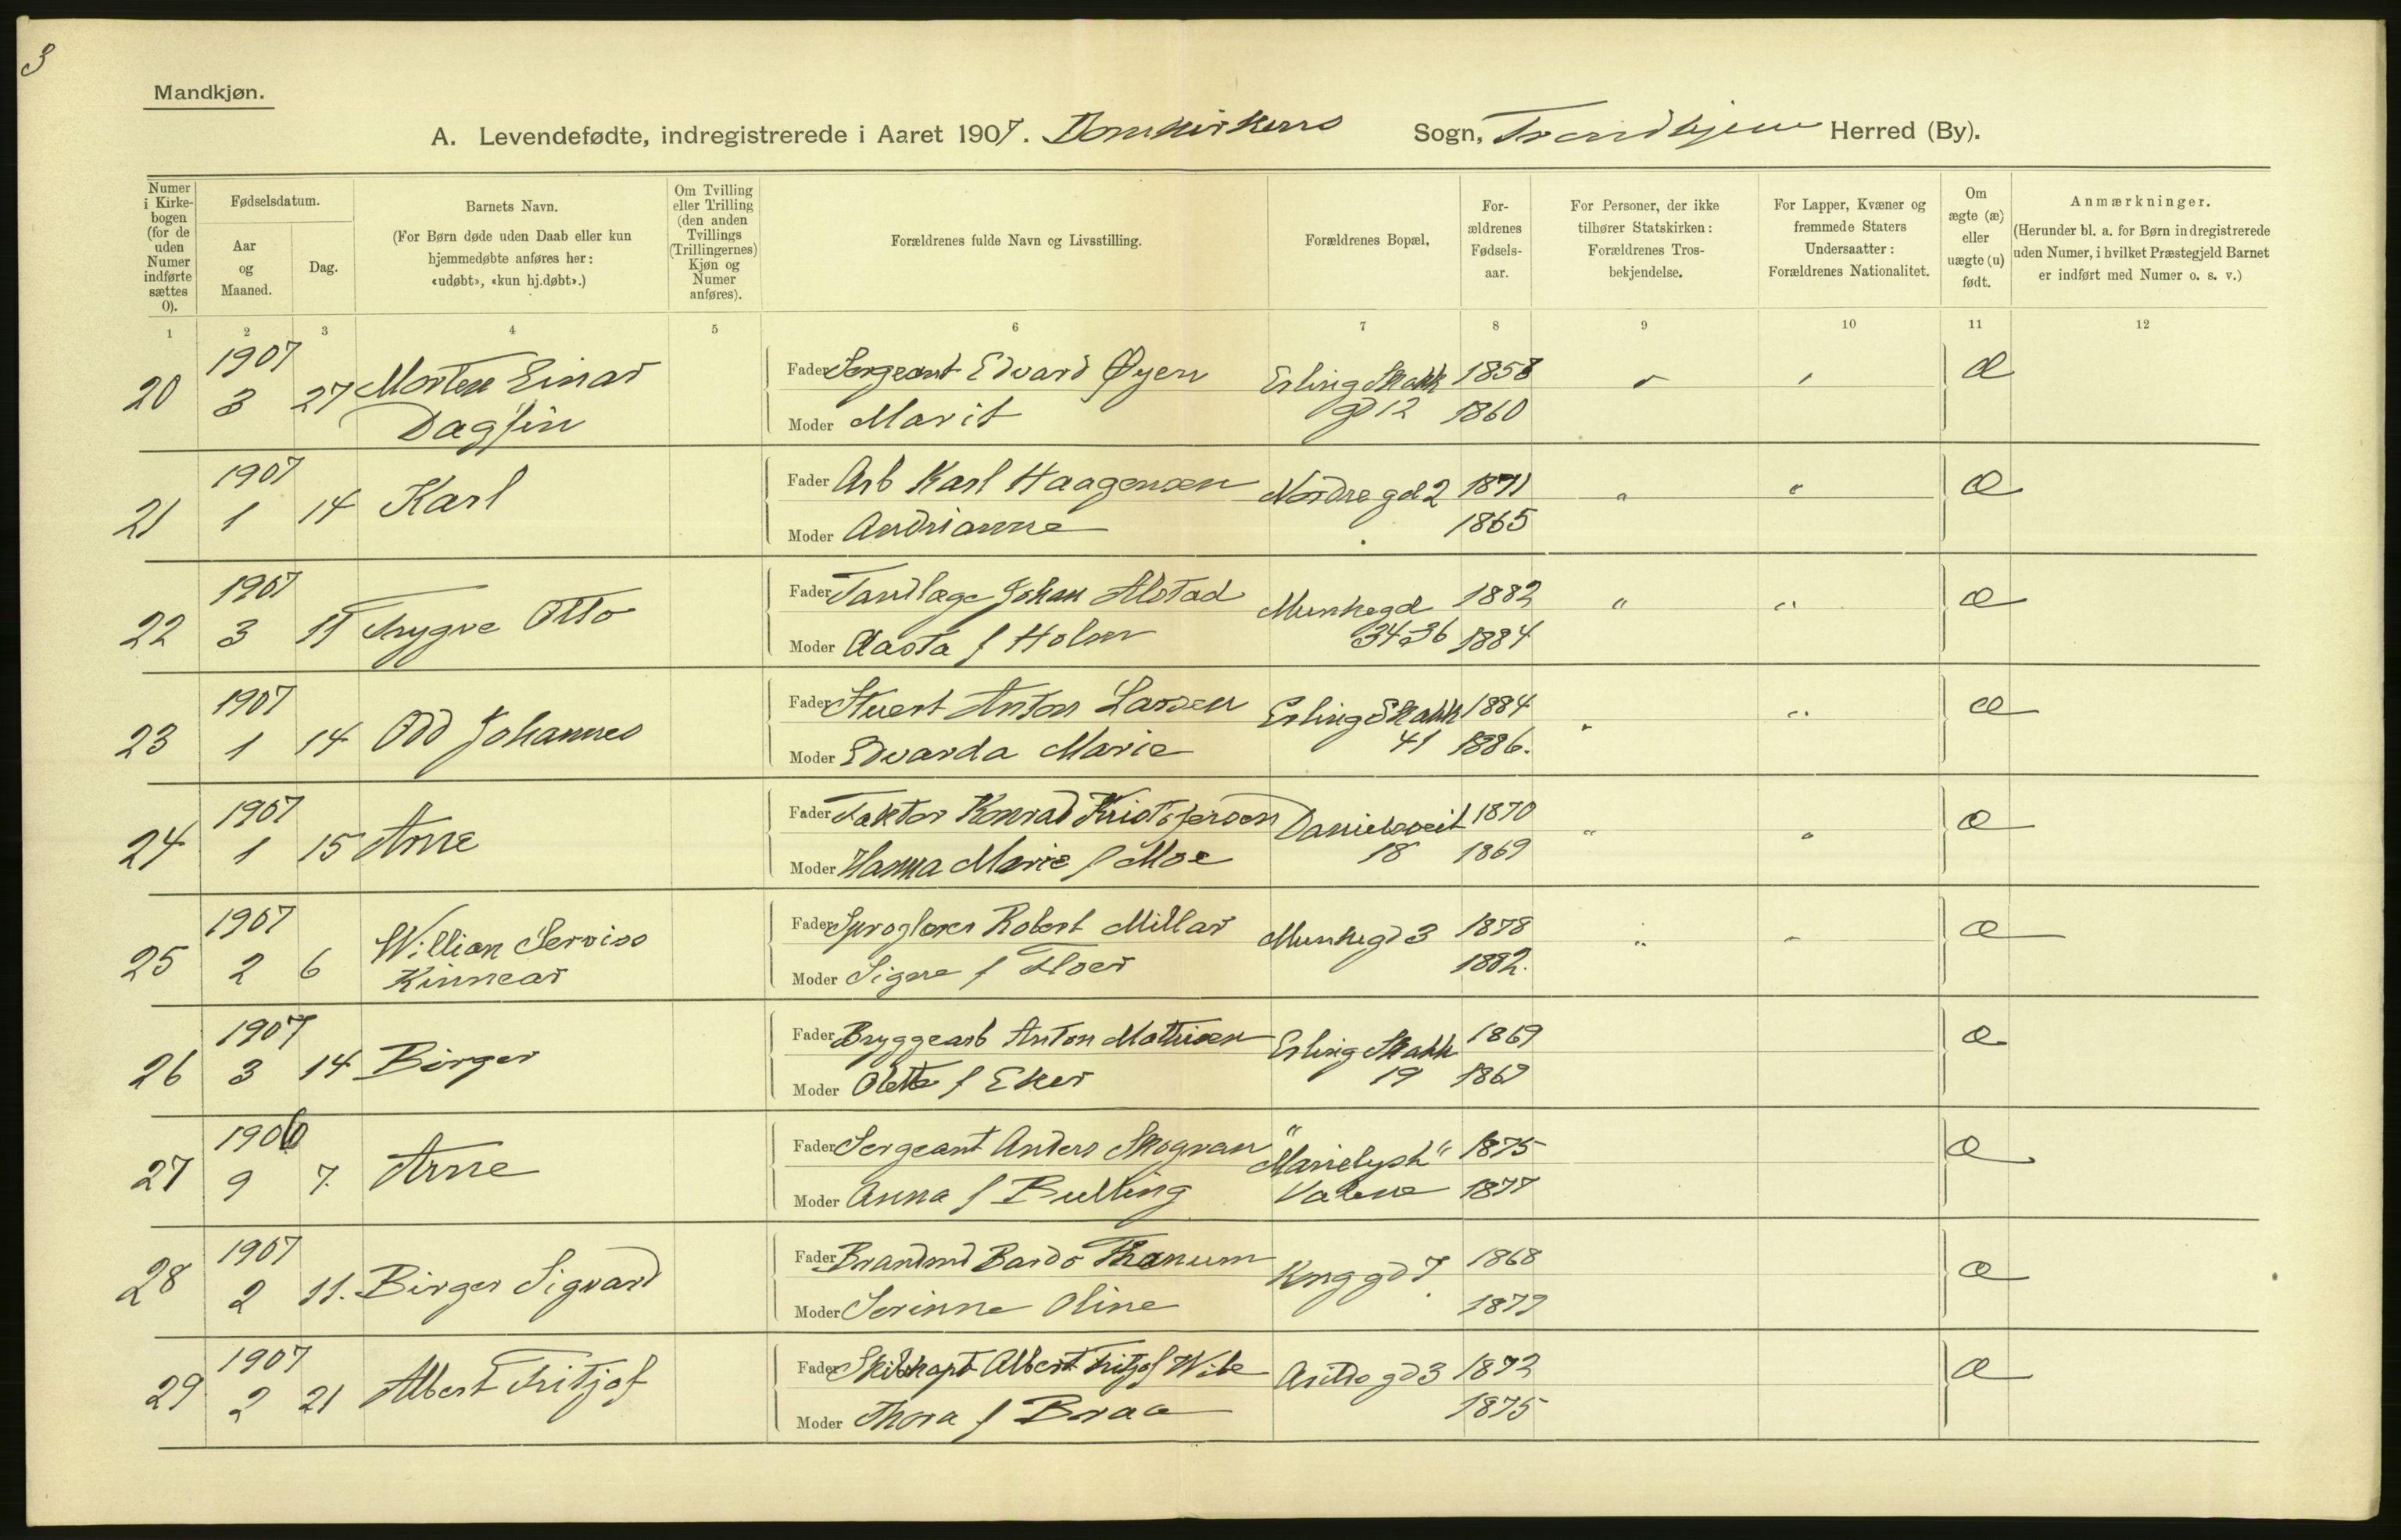 3
Mandkjøn.
A. Levendefødte, indregistrerede i Aaret 1907. Domkirkens Sogn, Trondhjem Herred (By).
Numer i Kirke-bogen (for de uden Numer indførte sættes 0).
Fødselsdatum.
Aar og Maaned.
Dag.
Barnets Navn.
(For Børn døde uden Daab eller kun hjemmedøbte anføres her: «udøbt», «kun hj.døbt».)
Om Tvilling eller Trilling (den anden Tvillings (Trillingernes) Kjøn og Numer anføres).
Forældrenes fulde Navn og Livsstilling.
Forældrenes Bopæl,
For-ældrenes Fødsels-aar.
For Personer, der ikke tilhører Statskirken: Forældrenes Tros-bekjendelse.
For Lapper, Kvæner og fremmede Staters Undersaatter: Forældrenes Nationalitet.
Om ægte (æ) eller uægte (u) født.
Anmærkninger.
(Herunder bl. a. for Børn indregistrerede uden Numer, i hvilket Præstegjeld Barnet er indført med Numer o. s. v.)
1 2 3 4 5 6 7 8 9 10 11 12
1907 Fader Sergeant Edvard Øyen Erling Skakk 1858 " " æ
20 3 27 Morten Einar
Dagfin Moder Marit gd 12 1860
1907 Fader Arb Karl Haagensen Nordre gd 2 1871 " " æ
21 1 14 Karl Moder Andrianne 1865
1907 Fader Tandlæge Johan Alstad Munkegd 1882 " " æ
22 3 11 Trygve Otto Moder Aasta f Holm 34-36 1884
1907 Fader Stuert Anton Larsen Erling Skakk 1884 " " æ
23 1 14 Odd Johannes Moder Edvarda Marie 41 1886.
1907 Fader Faktor Konrad Kristofersen Danielsveit 1870 " " æ
24 1 15 Arne Moder Hanna Marie f Moe 18 1869
1907 Fader Sproglærer Robert Millar Munkegd 3 1878 " " æ
25 2 6 William Serviss
Kinnear Moder Signe f Floer 1882.
1907 Fader Bryggearb Anton Mathisen Erling Skakk 1869 æ
26 3 14 Birger Moder Olette f Eker 19 1867
1906 Fader Sergeant Anders Skogvan "Marielyst" 1875 æ
27 9 7. Arne Moder Anna f Bulling 1877
1907 Fader Brandmd Bardo Thanum Kong gd 7 1868 æ
28 2 11. Birger Sigvard Moder Serinne Oline 1879
1907 Fader Skibskapt Albert Fritjof Wibe gd 3 1872 æ
29 2 21 Albert Fritjof Moder Thora f Braa 1875